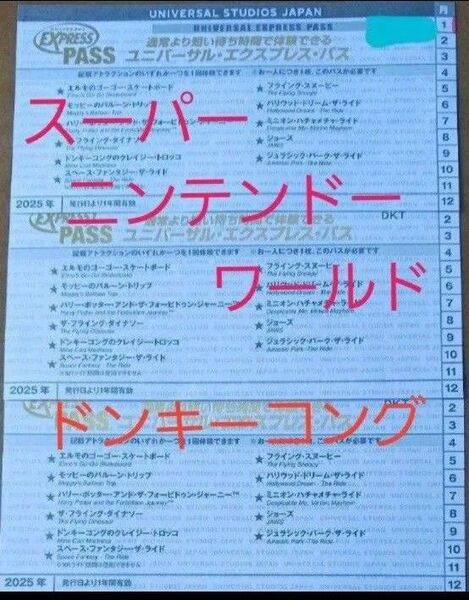 UNIVERSAL STUDIOS JAPAN
月
UNIVERSAL EXPRESS PASS
1
EXPRESS
PASS
通常より短い待ち時間で体験できる
ユニバーサル・エクスプレス・パス
記載アトラクションのいずれか一つを1回体験できます ※お一人につき1枚、このパスが必要です
4
★ エルモのゴーゴー・スケートボード ★ フライング・スヌーピー
5
The Flying Snoopy
スーパー
★ モッピーのバルーン・トリップ ★ ハリウッド・ドリーム・ザ・ライド
6
Moppy's Balloon Trip Hollywood Dream - The Ride
★ ミニオン・ハチャメチャ・ライド
7
Despicable Me: Minion Mayhem
フライング・ダイナソー ★ ジョーズ
8
The Flying Dinosaur JAWS
★ ドンキーコングのクレイジー・トロッコ ★ ジュラシック・パーク・ザ・ライド
9
Mine Cart Madness Jurassic Park - The Ride
★ スペース・ファンタジー・ザ・ライド
10
11
ニンテンドー
2025年 発行日より1年間有効
12
DKT
2
EXPRESS
PASS
通常より短い待ち時間で体験できる
ユニバーサル・エクスプレス・パス
3
4
★ エルモのゴーゴー・スケートボード ★ フライング・スヌーピー
5
Elmo's Go-Go Skateboard The Flying Snoopy
ワールド
★ モッピーのバルーン・トリップ ★ ハリウッド・ドリーム・ザ・ライド
6
Moppy's Balloon Trip Hollywood Dream - The Ride
★ ハリー・ポッター・アンド・ザ・フォービドゥン・ジャーニー™ ★ ミニオン・ハチャメチャ・ライド
7
Harry Potter and the Forbidden Journey™ Despicable Me: Minion Mayhem
★ ザ・フライング・ダイナソー ★ ジョーズ
8
The Flying Dinosaur JAWS
★ ドンキーコングのクレイジー・トロッコ ★ ジュラシック・パーク・ザ・ライド
9
Mine Cart Madness Jurassic Park - The Ride
★ スペース・ファンタジー・ザ・ライド
10
Space Fantasy - The Ride
11
2025年 発行日より1年間有効
12
DKT
2
EXPRESS
PASS
ユニバーサル・エクスプレス・パス
3
ドンキーコング
記載アトラクションのいずれか一つを1回体験できます ※お一人につき1枚、このパスが必要です
4
★ エルモのゴーゴー・スケートボード ★ フライング・スヌーピー
5
Elmo's Go-Go Skateboard The Flying Snoopy
★ モッピーのバルーン・トリップ ★ ハリウッド・ドリーム・ザ・ライド
6
Moppy's Balloon Trip Hollywood Dream - The Ride
★ ハリー・ポッター・アンド・ザ・フォービドゥン・ジャーニー™ ★ ミニオン・ハチャメチャ・ライド
7
Harry Potter and the Forbidden Journey™ Despicable Me: Minion Mayhem
★ ザ・フライング・ダイナソー ★ ジョーズ
8
The Flying Dinosaur JAWS
★ ドンキーコングのクレイジー・トロッコ ★ ジュラシック・パーク・ザ・ライド
9
Mine Cart Madness Jurassic Park - The Ride
★ スペース・ファンタジー・ザ・ライド
10
Space Fantasy - The Ride
11
2025年 発行日より1年間有効
12